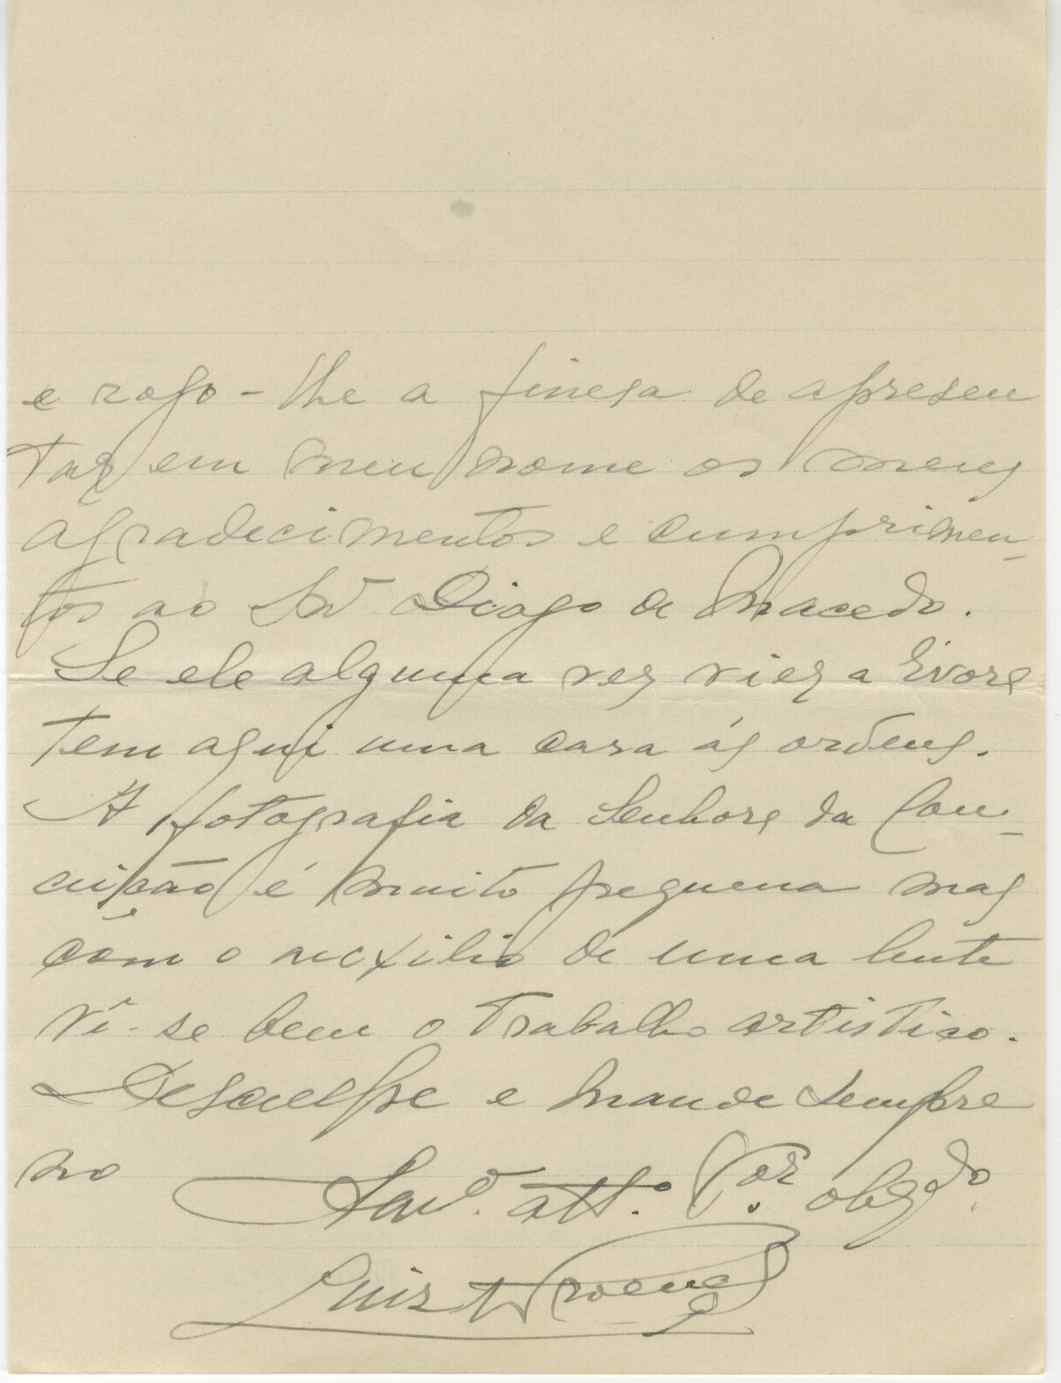 e rogo-lhe a finesa de apresen
tar em meu nome os meus
agradecimentos e cumprimen-
tos ao Snr Diogo de Macedo.
Se ele alguma vez vier a Évora
tem aqui uma casa ás ordens.
A fotografia da Senhora da Con-
ceição é muito pequena mas
com o auxilio de uma lente
vê-se bem o trabalho artistico.
Desculpe e mande sempre
no
attº. Vor. obgdo.
Luis